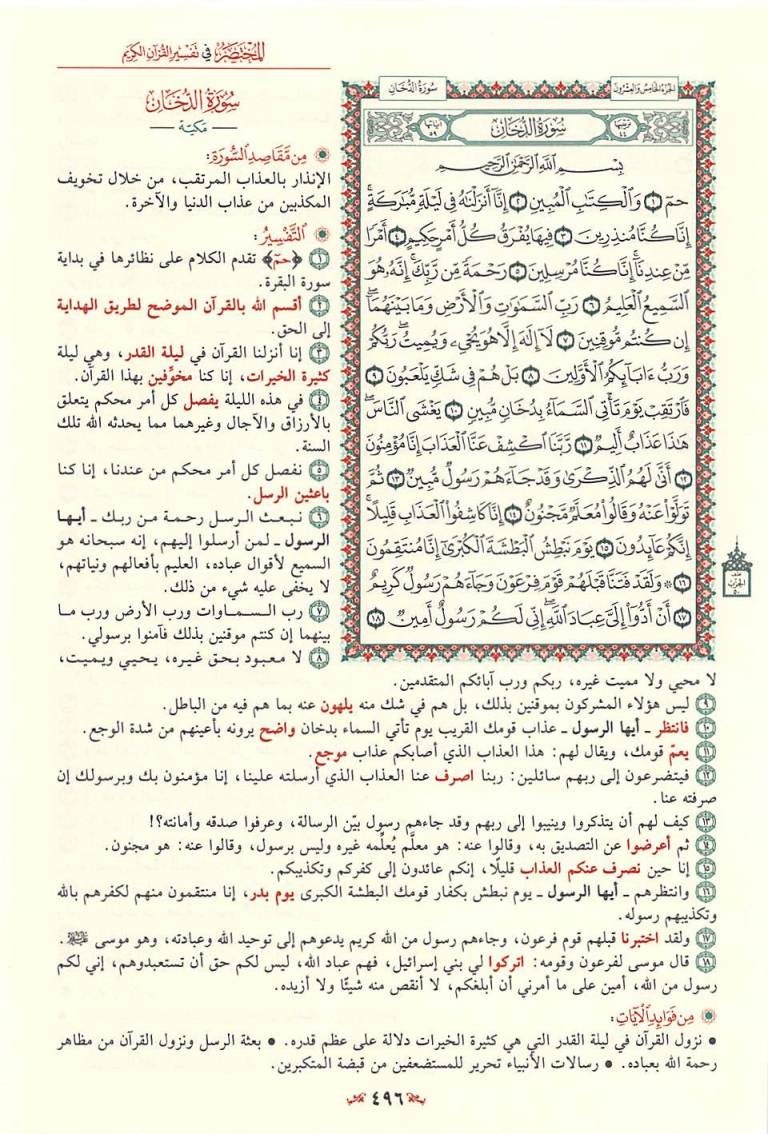 المختصر في تفسير القرآن الكريم
سُورَةُ الدُّخَان
مكية
من مقاصد السورة:
الإنذار بالعذاب المرتقب، من خلال تخويف
المكذبين من عذاب الدنيا والآخرة.
التفسير:
١ ﴿حمٓ﴾ تقدم الكلام على نظائرها في بداية
سورة البقرة.
٢ أقسم الله بالقرآن الموضح لطريق الهداية
إلى الحق.
٣ إنا أنزلنا القرآن في ليلة القدر، وهي ليلة
كثيرة الخيرات، إنا كنا مخوِّفين بهذا القرآن.
٤ في هذه الليلة يفصل كل أمر محكم يتعلق
بالأرزاق والآجال وغيرهما مما يحدثه الله تلك
السنة.
٥ نفصل كل أمر محكم من عندنا، إنا كنا
باعثين الرسل.
٦ نبعث الرسل رحمة من ربك ـ أيها
الرسول ـ لمن أرسلوا إليهم، إنه سبحانه هو
السميع لأقوال عباده، العليم بأفعالهم ونياتهم،
لا يخفى عليه شيء من ذلك.
٧ رب السماوات ورب الأرض ورب ما
بينهما إن كنتم موقنين بذلك فآمنوا برسولي.
٨ لا معبود بحق غيره، يحيي ويميت،
الجزء الخامس والعشرون
سورة الدخان
ترتيبها ٤٤
سُورَةُ الدُّخَانِ
آياتها ٥٩
بِسْمِ اللَّهِ الرَّحْمَٰنِ الرَّحِيمِ
حمٓ ١ وَٱلْكِتَٰبِ ٱلْمُبِينِ ٢ إِنَّآ أَنزَلْنَٰهُ فِى لَيْلَةٍ مُّبَٰرَكَةٍ ۚ
إِنَّا كُنَّا مُنذِرِينَ ٣ فِيهَا يُفْرَقُ كُلُّ أَمْرٍ حَكِيمٍ ٤ أَمْرًا
مِّنْ عِندِنَآ ۚ إِنَّا كُنَّا مُرْسِلِينَ ٥ رَحْمَةً مِّن رَّبِّكَ ۚ إِنَّهُۥ هُوَ
ٱلسَّمِيعُ ٱلْعَلِيمُ ٦ رَبِّ ٱلسَّمَٰوَٰتِ وَٱلْأَرْضِ وَمَا بَيْنَهُمَآ ۖ
إِن كُنتُم مُّوقِنِينَ ٧ لَآ إِلَٰهَ إِلَّا هُوَ يُحْىِۦ وَيُمِيتُ ۖ رَبُّكُمْ
وَرَبُّ ءَابَآئِكُمُ ٱلْأَوَّلِينَ ٨ بَلْ هُمْ فِى شَكٍّ يَلْعَبُونَ ٩
فَٱرْتَقِبْ يَوْمَ تَأْتِى ٱلسَّمَآءُ بِدُخَانٍ مُّبِينٍ ١٠ يَغْشَى ٱلنَّاسَ ۖ
هَٰذَا عَذَابٌ أَلِيمٌ ١١ رَّبَّنَا ٱكْشِفْ عَنَّا ٱلْعَذَابَ إِنَّا مُؤْمِنُونَ
١٢ أَنَّىٰ لَهُمُ ٱلذِّكْرَىٰ وَقَدْ جَآءَهُمْ رَسُولٌ مُّبِينٌ ١٣ ثُمَّ
تَوَلَّوْا۟ عَنْهُ وَقَالُوا۟ مُعَلَّمٌ مَّجْنُونٌ ١٤ إِنَّا كَاشِفُوا۟ ٱلْعَذَابِ قَلِيلًا ۚ
إِنَّكُمْ عَآئِدُونَ ١٥ يَوْمَ نَبْطِشُ ٱلْبَطْشَةَ ٱلْكُبْرَىٰٓ إِنَّا مُنتَقِمُونَ
١٦ ۞ وَلَقَدْ فَتَنَّا قَبْلَهُمْ قَوْمَ فِرْعَوْنَ وَجَآءَهُمْ رَسُولٌ كَرِيمٌ
١٧ أَنْ أَدُّوٓا۟ إِلَىَّ عِبَادَ ٱللَّهِ ۖ إِنِّى لَكُمْ رَسُولٌ أَمِينٌ ١٨
الحزب
٥٠
لا محيي ولا مميت غيره، ربكم ورب آبائكم المتقدمين.
٩ ليس هؤلاء المشركون بموقنين بذلك، بل هم في شك منه يلهون عنه بما هم فيه من الباطل.
١٠ فانتظر ـ أيها الرسول ـ عذاب قومك القريب يوم تأتي السماء بدخان واضح يرونه بأعينهم من شدة الوجع.
١١ يعمّ قومك، ويقال لهم: هذا العذاب الذي أصابكم عذاب موجع.
١٢ فيتضرعون إلى ربهم سائلين: ربنا اصرف عنا العذاب الذي أرسلته علينا، إنا مؤمنون بك وبرسولك إن
صرفته عنا.
١٣ كيف لهم أن يتذكروا وينيبوا إلى ربهم وقد جاءهم رسول بيّن الرسالة، وعرفوا صدقه وأمانته؟!
١٤ ثم أعرضوا عن التصديق به، وقالوا عنه: هو معلَّم يُعلِّمه غيره وليس برسول، وقالوا عنه: هو مجنون.
١٥ إنا حين نصرف عنكم العذاب قليلًا، إنكم عائدون إلى كفركم وتكذيبكم.
١٦ وانتظرهم ـ أيها الرسول ـ يوم نبطش بكفار قومك البطشة الكبرى يوم بدر، إنا منتقمون منهم لكفرهم بالله
وتكذيبهم رسوله.
١٧ ولقد اختبرنا قبلهم قوم فرعون، وجاءهم رسول من الله كريم يدعوهم إلى توحيد الله وعبادته، وهو موسى ﷺ.
١٨ قال موسى لفرعون وقومه: اتركوا لي بني إسرائيل، فهم عباد الله، ليس لكم حق أن تستعبدوهم، إني لكم
رسول من الله، أمين على ما أمرني أن أبلغكم، لا أنقص منه شيئًا ولا أزيده.
من فوائد الآيات:
• نزول القرآن في ليلة القدر التي هي كثيرة الخيرات دلالة على عظم قدره. • بعثة الرسل ونزول القرآن من مظاهر
رحمة الله بعباده. • رسالات الأنبياء تحرير للمستضعفين من قبضة المتكبرين.
٤٩٦